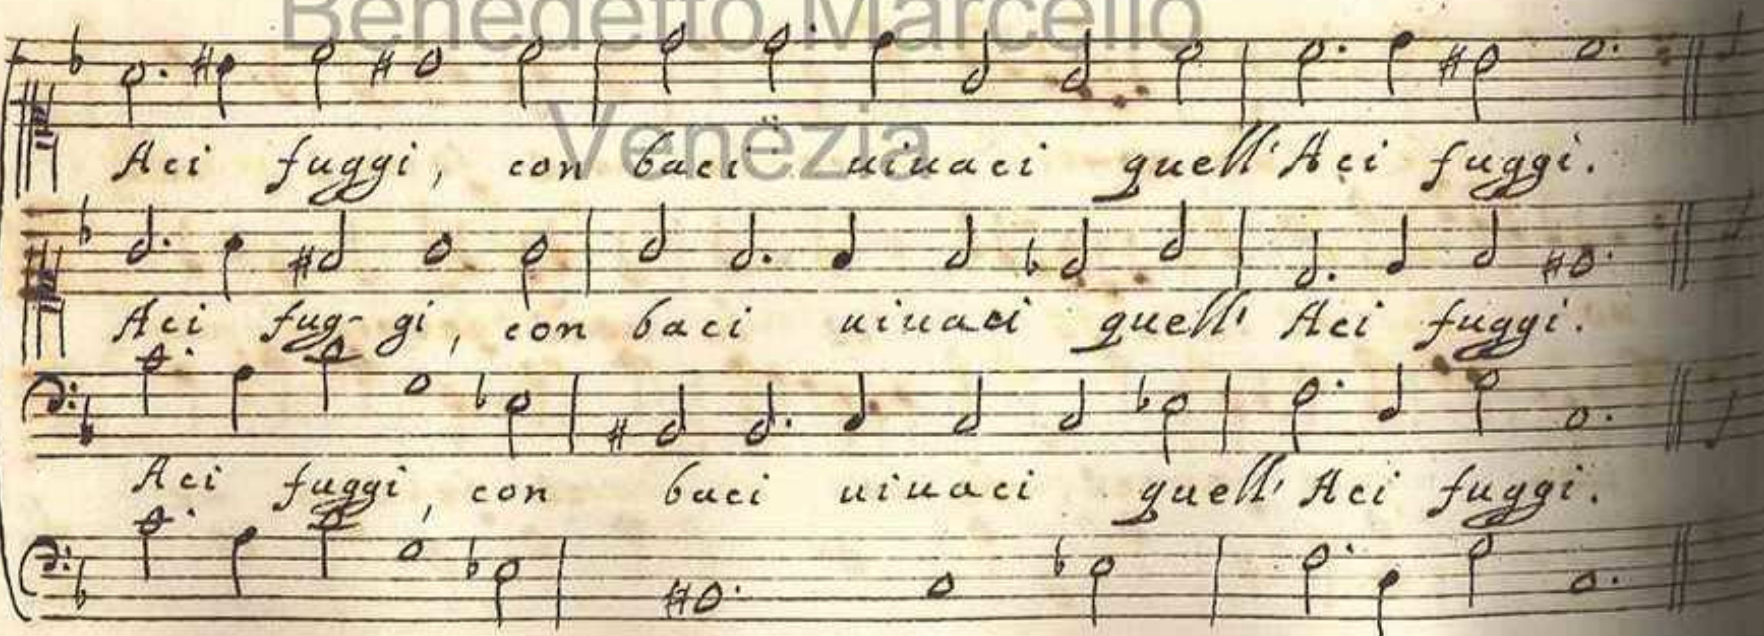 Benedetto Marcello
Venezia
Aci fuggi, con baci uiuaci quell' Aci fuggi.
Aci fug- gi, con baci uiuaci quell' Aci fuggi.
Aci fuggi, con baci uiuaci quell' Aci fuggi.